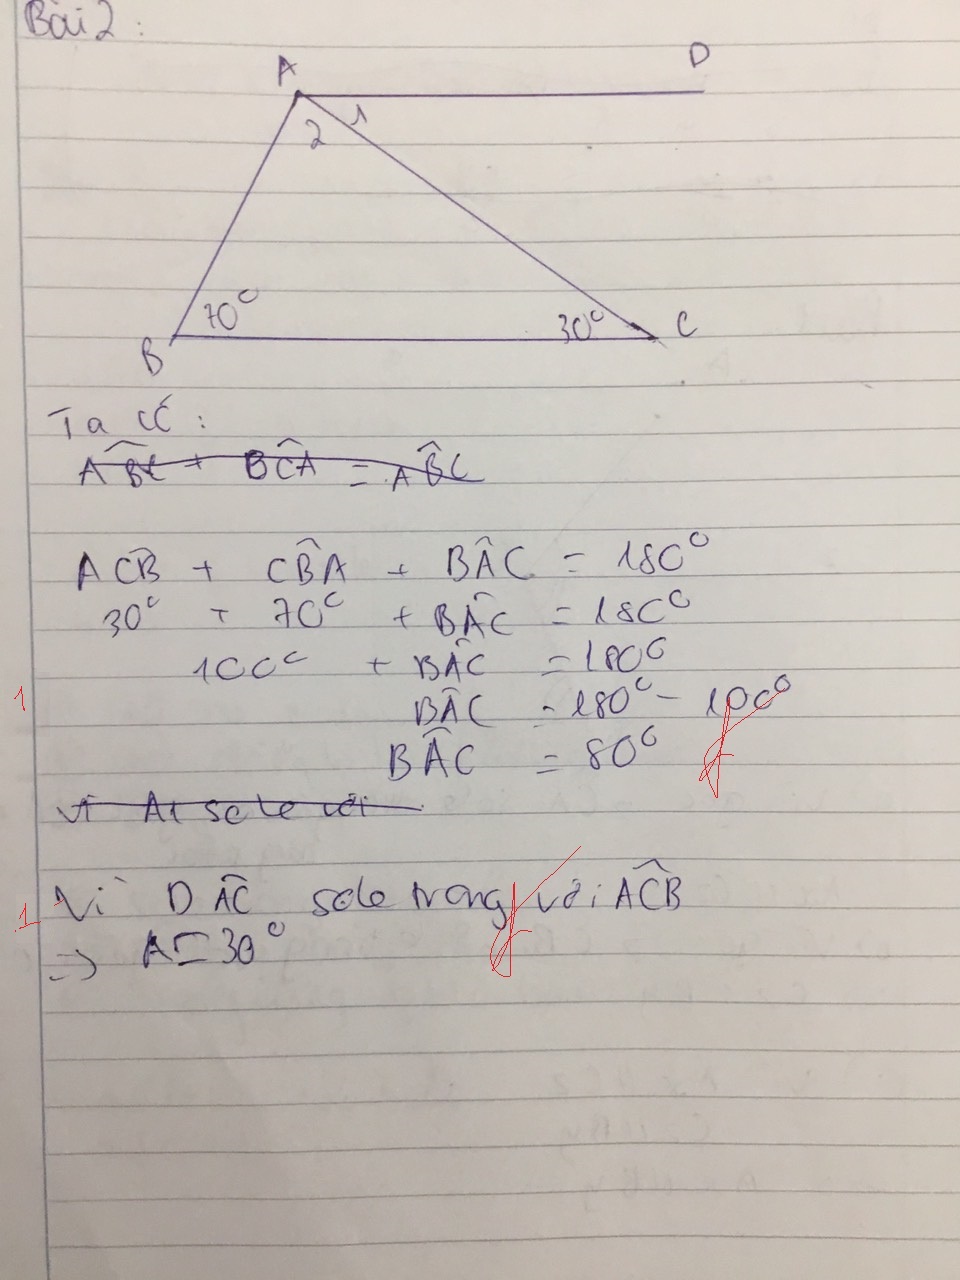 Bài 2:
A
D
2 1
70°
30°
B
C
Ta có:
ABC + BCA = ABC
ACB + CBA + BAC = 180°
30° + 70° + BAC = 180°
100° + BAC = 180°
1
BAC = 180° - 100°
BAC = 80°
Vì A1 so le với
1
Vì DAC so le trong với ACB
=> A = 30°